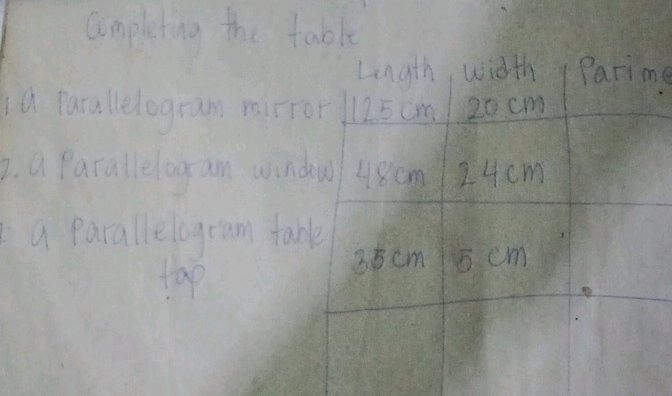 Completing the table
Length Width Parime
1 a Parallelogram mirror 125 cm 20 cm
2. a Parallelogram window 48 cm 24 cm
a Parallelogram table 35 cm 5 cm
tap